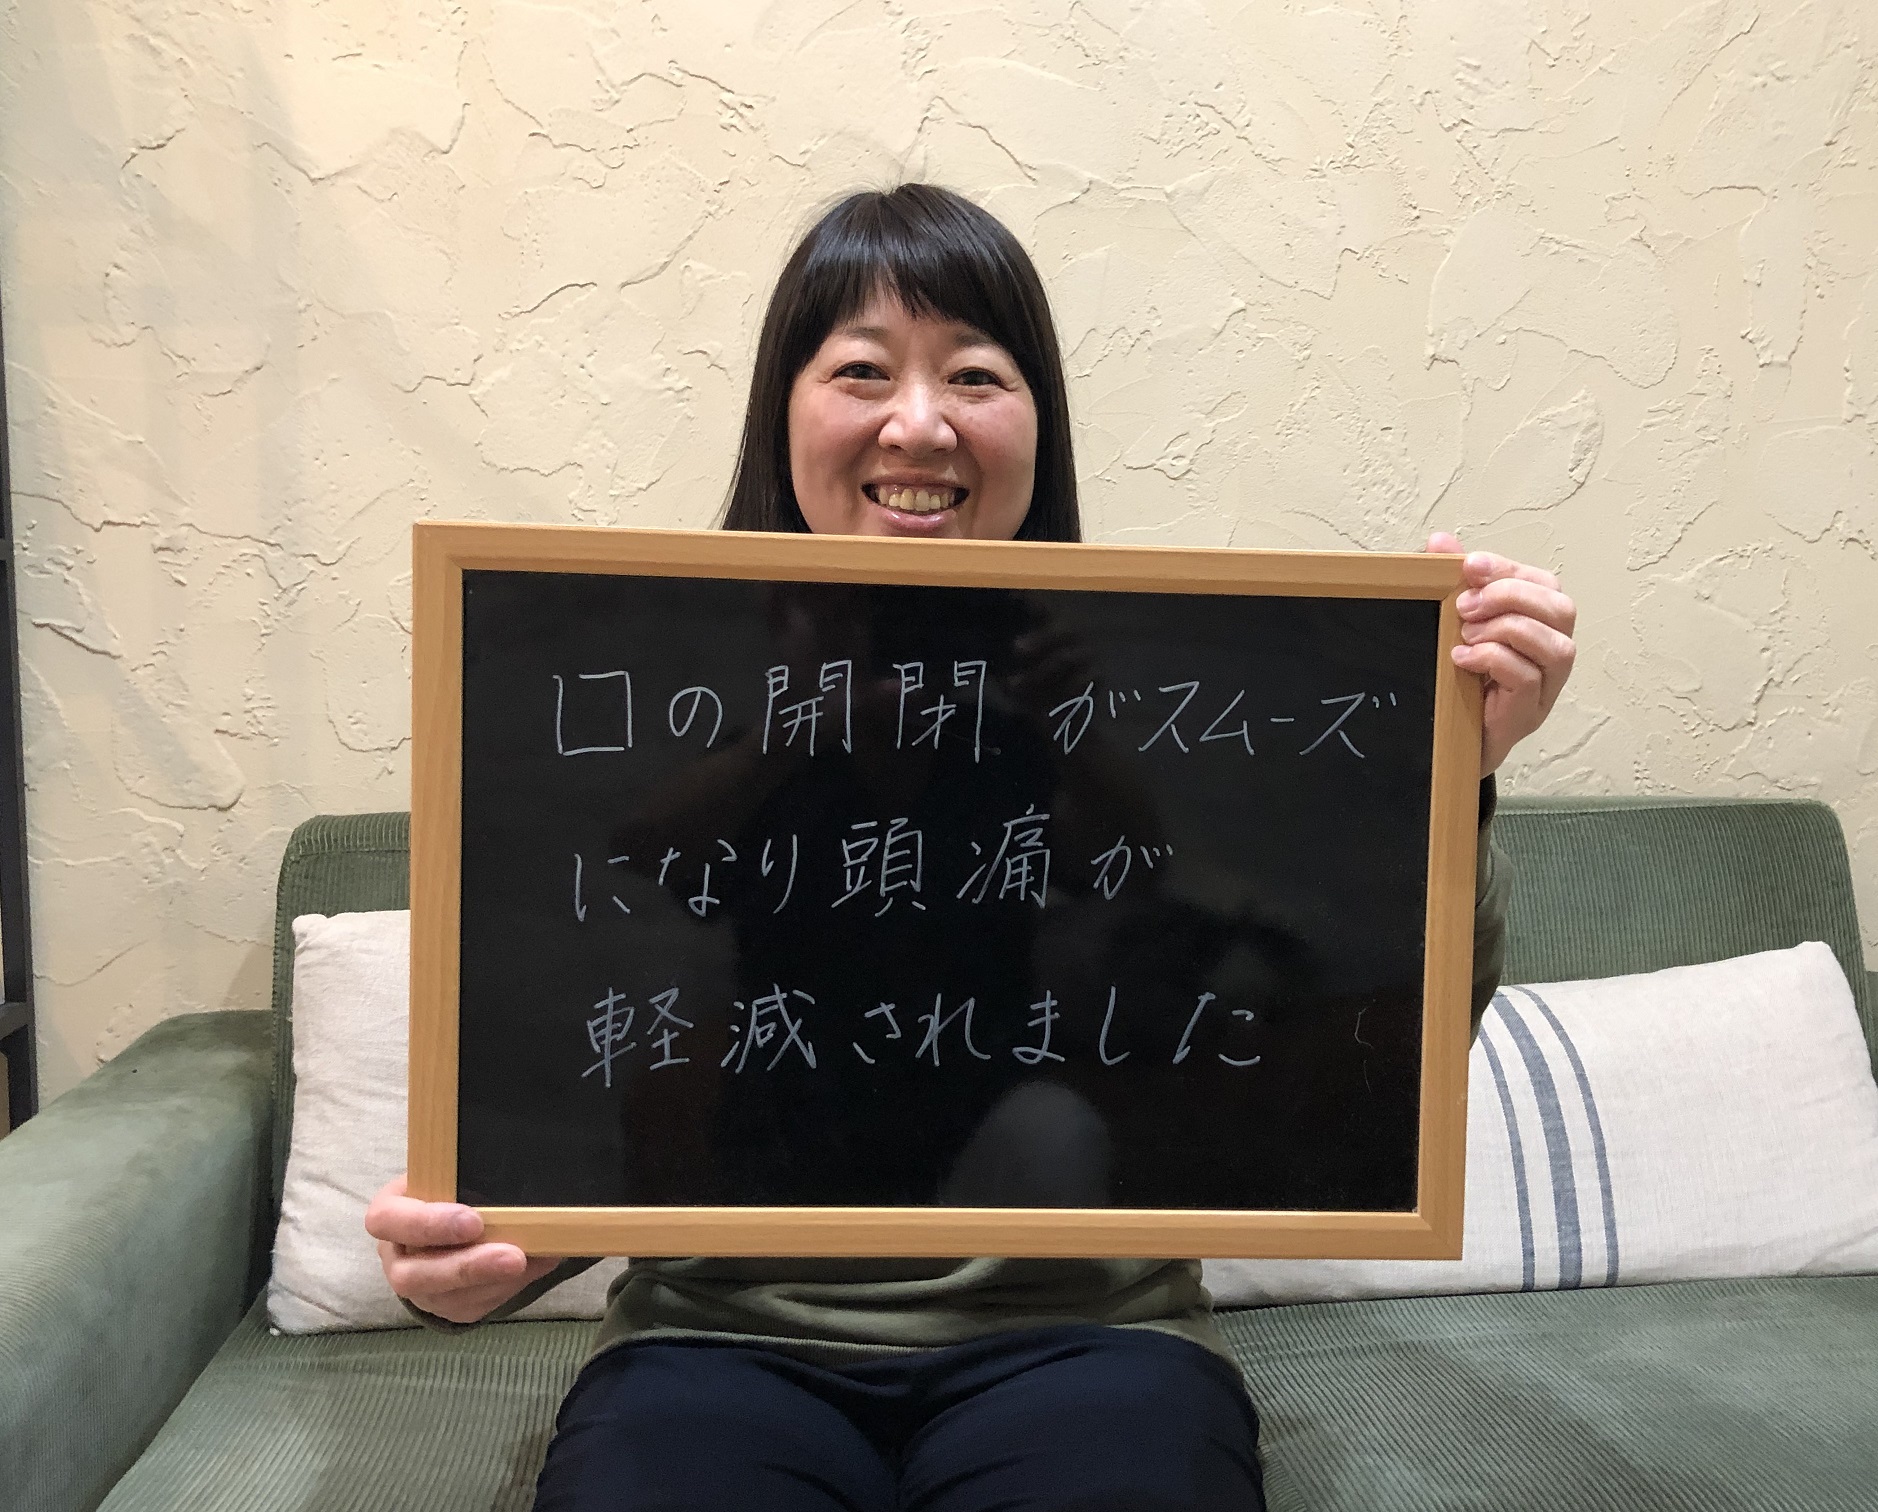 口の開閉がスムーズ
になり頭痛が
軽減されました